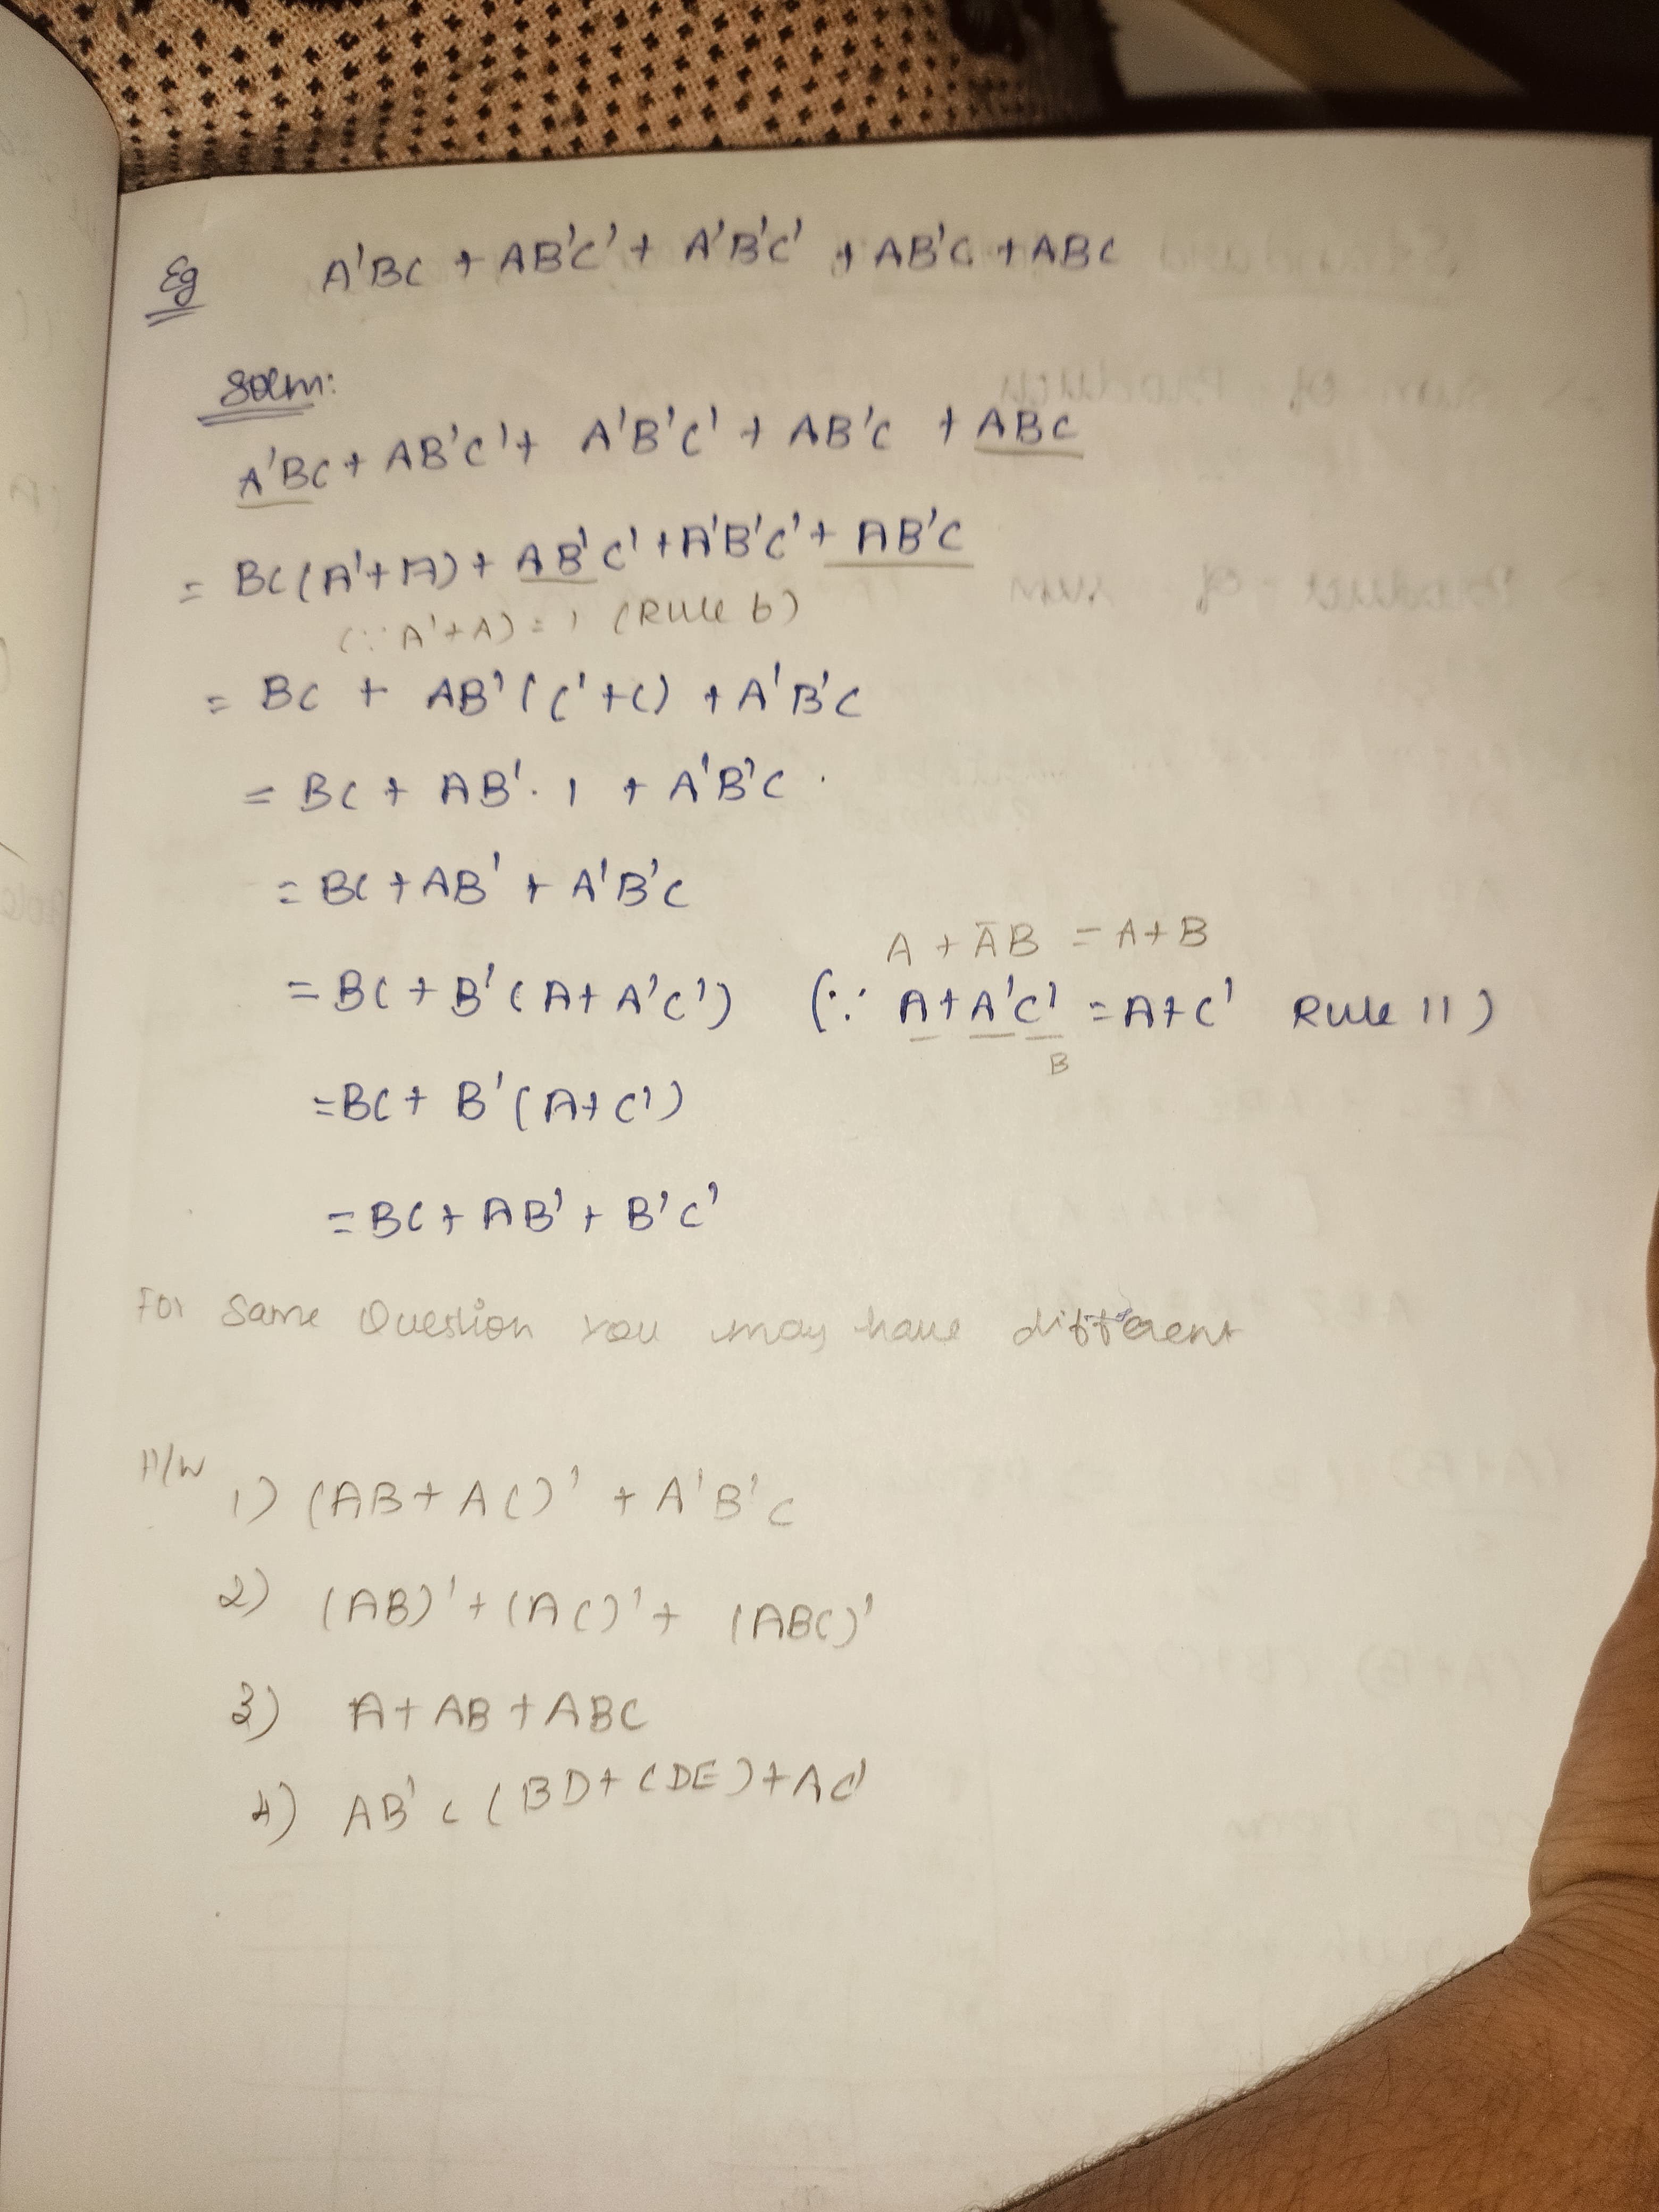 Eg A'BC + AB'C' + A'B'C' + AB'C + ABC
Soln:
A'BC + AB'C' + A'B'C' + AB'C + ABC
= BC(A'+A) + AB'C' + A'B'C' + AB'C
(∵ A'+A) = 1 (Rule 6)
= BC + AB'(C'+C) + A'B'C
= BC + AB'. 1 + A'B'C
= BC + AB' + A'B'C
A + A̅B = A+B
= BC + B'(A+A'C') (∵ A+A'C' = A+C' Rule 11)
B
= BC + B'(A+C')
= BC + AB' + B'C'
For Same Question you may have different
H/W
1) (AB+AC)' + A'B'C
2) (AB)' + (AC)' + (ABC)'
3) A+AB+ABC
4) AB'C (BD+CDE)+AC'